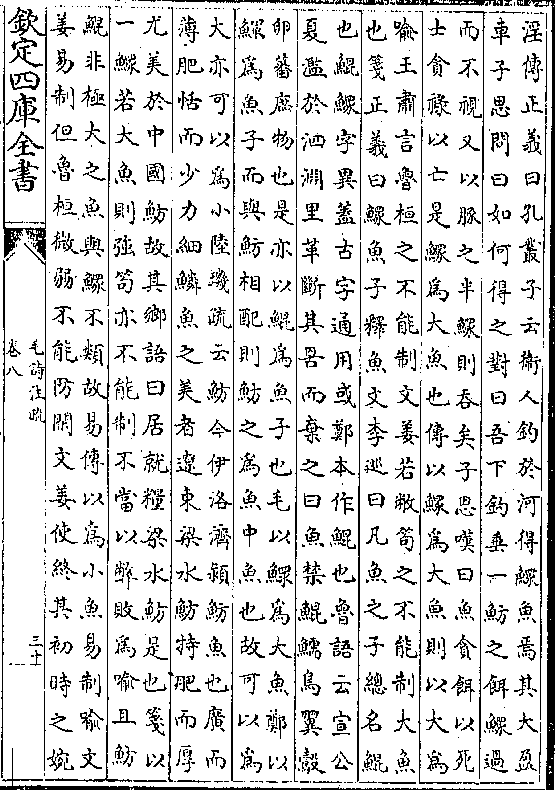 淫傳正義曰孔叢子云衛人釣於河得鰥魚焉其大盈
車子思問曰如何得之對曰吾下釣垂一魴之餌鰥過
而不視又以豚之半鰥則吞矣子思嘆曰魚貪餌以死
士貪祿以亡是鰥為大魚也傳以鰥為大魚則以大為
喻王肅言魯桓之不能制文姜若敝笱之不能制大魚
也箋正義曰鰥魚子釋魚文李巡曰凡魚之子總名鯤
也鯤鰥字異蓋古字通用或鄭本作鯤也魯語云宣公
夏濫於泗淵里革斷其罟而棄之曰魚禁鯤鱬鳥翼鷇
卵蕃庶物也是亦以鯤為魚子也毛以鰥為大魚鄭以
鰥為魚子而與魴相配則魴之為魚中魚也故可以為
大亦可以為小陸璣疏云魴今伊洛濟潁魴魚也廣而
薄肥恬而少力細鱗魚之美者遼東梁水魴特肥而厚
尤美於中國魴故其鄉語曰居就糧梁水魴是也箋以
一鰥若大魚則強笱亦不能制不當以弊敗為喻且魴
鯤非極大之魚與鰥不類故易傳以為小魚易制喻文
姜易制但魯桓微弱不能防閑文姜使終其初時之婉
欽定四庫全書
毛詩注疏
卷八
三十